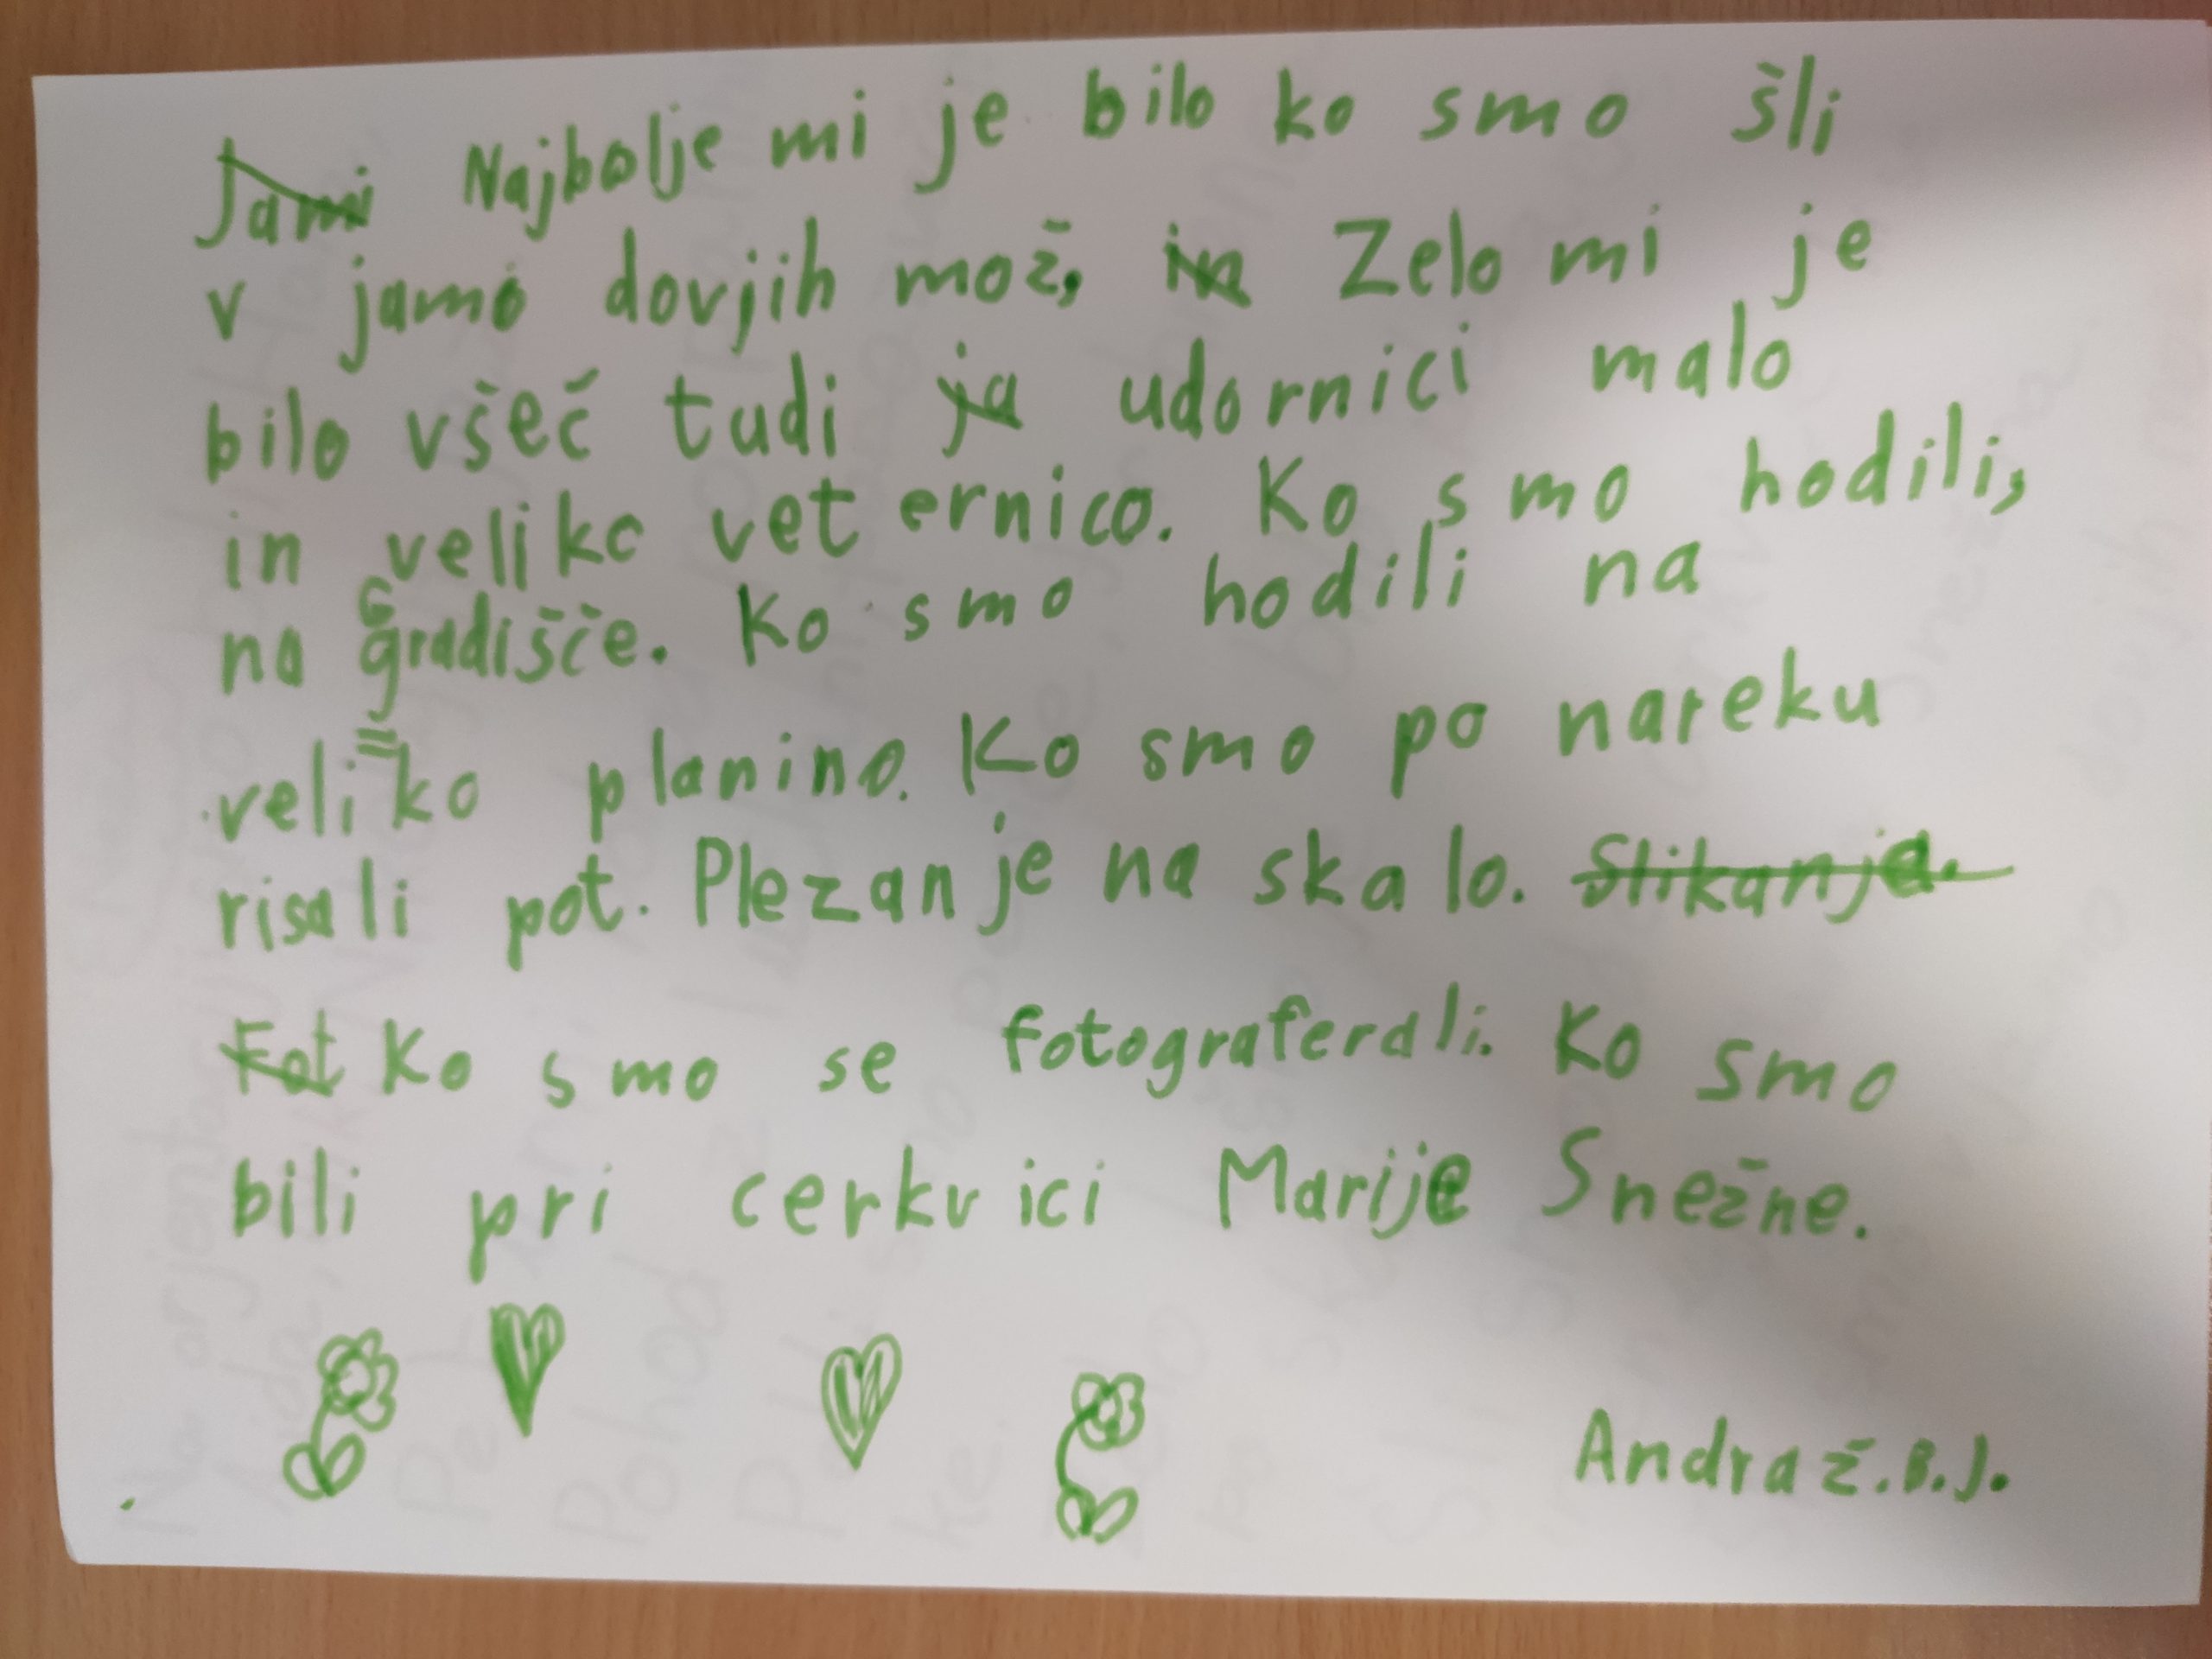 Jami Najbolje mi je bilo ko smo šli
v jamo dovjih mož, in Zelo mi je
bilo všeč tudi ja udornici malo
in veliko vet ernico. Ko smo hodili,
na Gradišče. Ko smo hodili na
veliko planino. Ko smo po nareku
risali pot. Plezanje na skalo. Slikanje.
Fot Ko smo se fotograferali. Ko smo
bili pri cerkvici Marije Snežne.
Andraž.B.J.